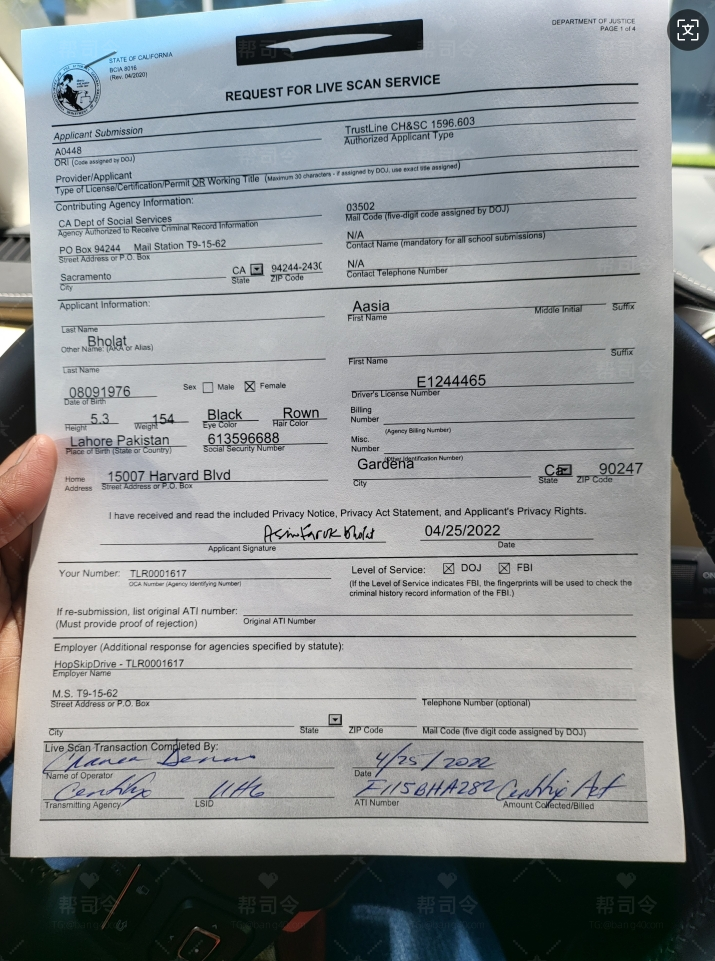 DEPARTMENT OF JUSTICE
PAGE 1 of 4
STATE OF CALIFORNIA
BCIA 8016
(Rev. 04/2020)
REQUEST FOR LIVE SCAN SERVICE
Applicant Submission
A0448
ORI (Code assigned by DOJ)
TrustLine CH&SC 1596.603
Authorized Applicant Type
Provider/Applicant
Type of License/Certification/Permit OR Working Title (Maximum 30 characters - if assigned by DOJ, use exact title assigned)
Contributing Agency Information:
CA Dept of Social Services
Agency Authorized to Receive Criminal Record Information
03502
Mail Code (five-digit code assigned by DOJ)
PO Box 94244 Mail Station T9-15-62
Street Address or P.O. Box
N/A
Contact Name (mandatory for all school submissions)
Sacramento CA 94244-243
City State ZIP Code
N/A
Contact Telephone Number
Applicant Information:
Last Name
Aasia
First Name Middle Initial Suffix
Bholat
Other Name: (AKA or Alias)
Last Name
First Name Suffix
08091976 Sex Male Female
Date of Birth
E1244465
Driver's License Number
5.3 154 Black Rown
Height Weight Eye Color Hair Color
Billing
Number
(Agency Billing Number)
Lahore Pakistan 613596688
Place of Birth (State or Country) Social Security Number
Misc.
Number
(Other Identification Number)
Home
Address
15007 Harvard Blvd
Street Address or P.O. Box
Gardena Ca 90247
City State ZIP Code
I have received and read the included Privacy Notice, Privacy Act Statement, and Applicant's Privacy Rights.
04/25/2022
Applicant Signature Date
Your Number: TLR0001617
OCA Number (Agency Identifying Number)
Level of Service: DOJ FBI
(If the Level of Service indicates FBI, the fingerprints will be used to check the
criminal history record information of the FBI.)
If re-submission, list original ATI number:
(Must provide proof of rejection) Original ATI Number
Employer (Additional response for agencies specified by statute):
HopSkipDrive - TLR0001617
Employer Name
M.S. T9-15-62
Street Address or P.O. Box Telephone Number (optional)
City State ZIP Code Mail Code (five digit code assigned by DOJ)
Live Scan Transaction Completed By:
4/25/2022
Name of Operator Date
Certifix F115BHA282 Certifix Act
Transmitting Agency LSID ATI Number Amount Collected/Billed
帮司令